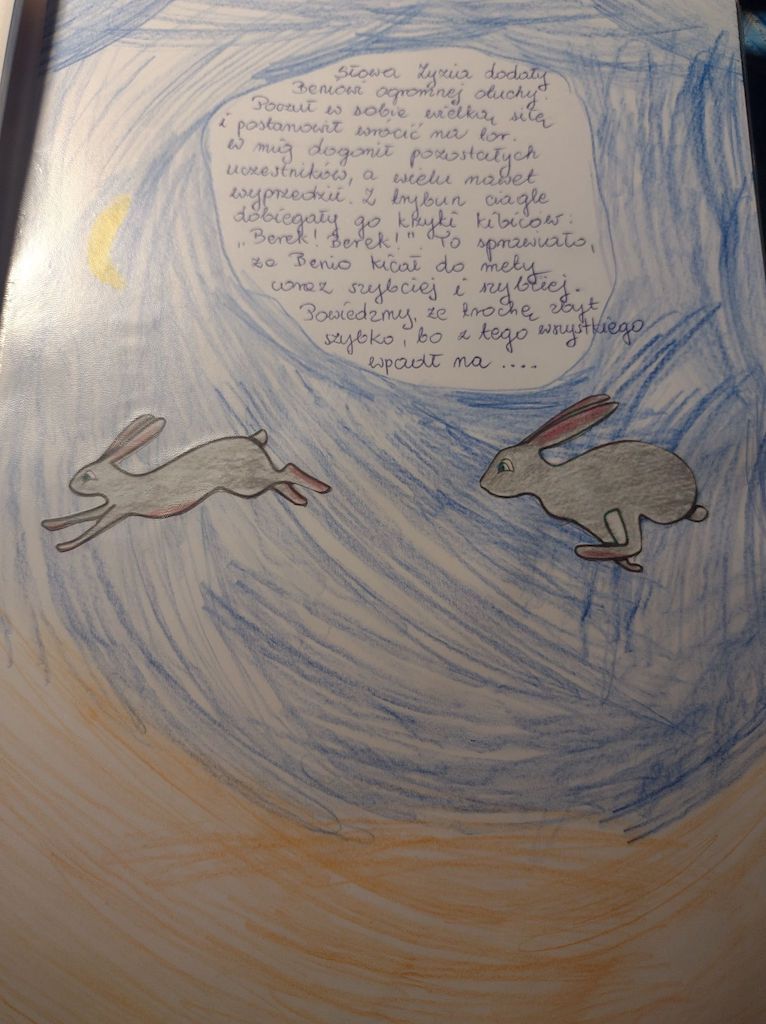 Słowa Zyzia dodały
Beniowi ogromnej otuchy.
Poczuł w sobie wielką siłę
i postanowił wrócić na tor.
W mig dogonił pozostałych
uczestników, a wielu nawet
wyprzedził. Z trybun ciągle
dobiegały go krzyki kibiców:
„Berek! Berek!" To sprawiało,
że Benio kicał do mety
coraz szybciej i szybciej.
Powiedzmy, że trochę zbyt
szybko, bo z tego wszystkiego
wpadł na ....